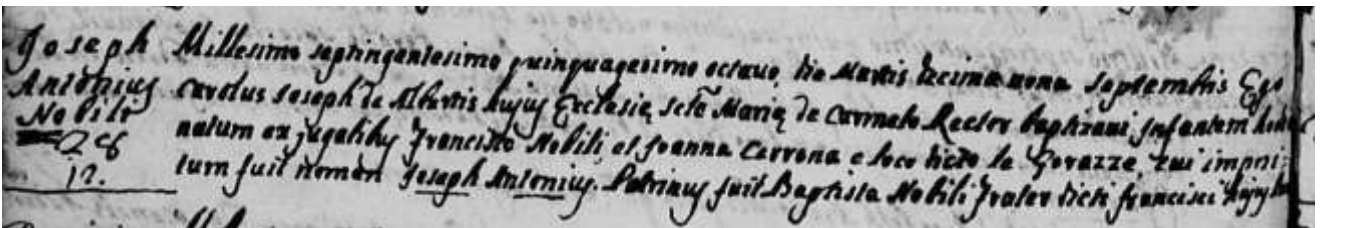 Joseph
Antonius
Nobili
28
12.
Millesimo septingentesimo quinquagesimo octavo, die Martis decima nona Septembris Ego
Carolus Joseph de Albertis hujus Ecclesię sctę Marię de Carmelo Rector baptizavi Infantem
natum ex jugalibus Francisco Nobili, et Joanna Carrona e loco dicto le Gorazze, cui imposi-
tum fuit nomen Joseph Antonius. Patrinus fuit Baptista Nobili frater dicti Francisci hujus